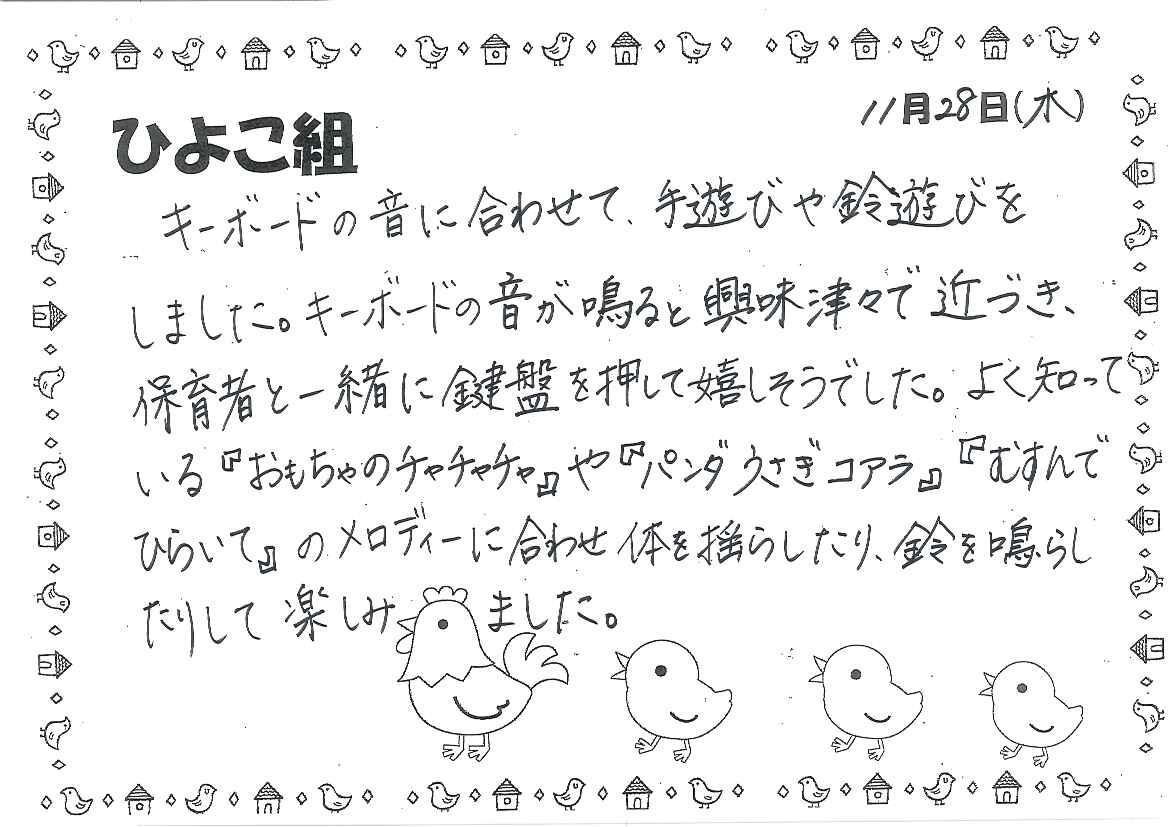 11月28日(木)
ひよこ組
キーボードの音に合わせて、手遊びや鈴遊びを
しました。キーボードの音が鳴ると興味津々で近づき、
保育者と一緒に鍵盤を押して嬉しそうでした。よく知って
いる『おもちゃのチャチャチャ』や『パンダうさぎコアラ』『むすんで
ひらいて』のメロディーに合わせ体を揺らしたり、鈴を鳴らし
たりして楽しみました。